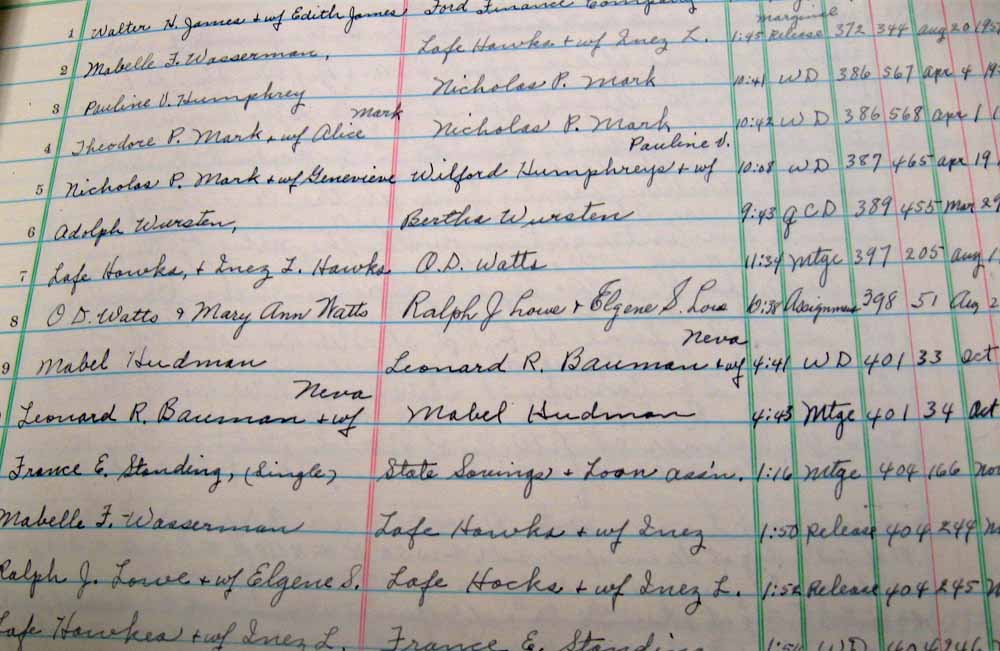 1 Walter H. James + wf Edith James Ford Finance Company
marginal
2 Mabelle F. Wasserman, Lafe Hawks + wf Inez L. 1:45 Release 372 344 Aug 20 195
3 Pauline V. Humphrey Nicholas P. Mark 10:41 WD 386 567 Apr 4 195
Mark
4 Theodore P. Mark + wf Alice Nicholas P. Mark 10:42 WD 386 568 Apr
Pauline V.
5 Nicholas P. Mark + wf Genevieve Wilford Humphreys + wf 10:08 WD 387 465 Apr 19
6 Adolph Wursten, Bertha Wursten 9:43 QCD 389 455 Mar 29
7 Lafe Hawks, + Inez L. Hawks O.D. Watts 11:34 Mtge 397 205 Aug
8 O D. Watts & Mary Ann Watts Ralph J Lowe + Elgene S. Lowe 10:38 Assignment 398 51 Aug 2
Neva
9 Mabel Hudman Leonard R. Bauman + wf 4:41 WD 401 33 Oct
Neva
Leonard R. Bauman + wf Mabel Hudman 4:43 Mtge 401 34 Oct
France E. Standing, (Single) State Savings + Loan Ass'n. 1:16 Mtge 404 166 Nov
Mabelle F. Wasserman Lafe Hawks + wf Inez 1:50 Release 404 244
Ralph J. Lowe + wf Elgene S. Lafe Hocks + wf Inez L. 1:52 Release 404 245 N
Lafe Hawkes + wf Inez L. France E. Standing WD 404 246